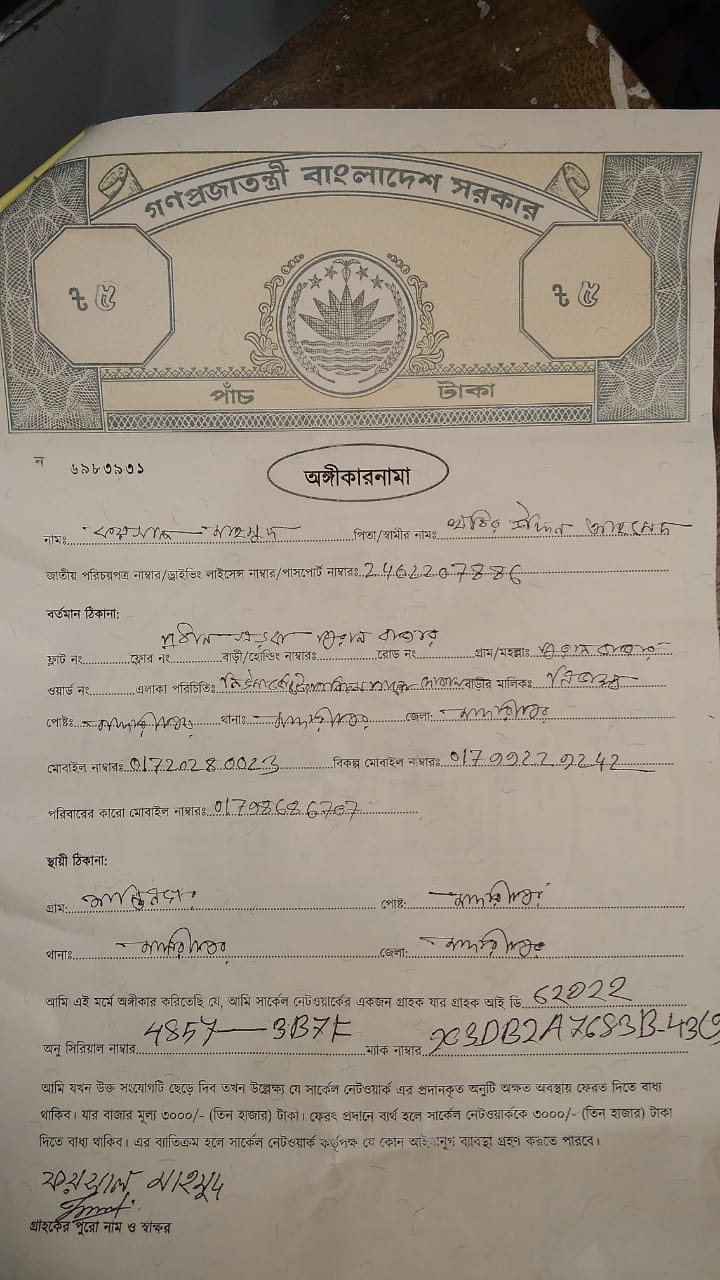 গণপ্রজাতন্ত্রী বাংলাদেশ সরকার
৳ ৫ ৳ ৫
পাঁচ টাকা
ন ৬৯৮৩৯৩১
অঙ্গীকারনামা
নামঃ ফয়সাল মাহমুদ পিতা/স্বামীর নামঃ
জাতীয় পরিচয়পত্র নাম্বার/ড্রাইভিং লাইসেন্স নাম্বার/পাসপোর্ট নাম্বারঃ 2462207886
বর্তমান ঠিকানা:
ফ্লাট নং ফ্লোর নং বাড়ী/হোল্ডিং নাম্বারঃ রোড নং গ্রাম/মহল্লাঃ
ওয়ার্ড নং এলাকা পরিচিতিঃ বাড়ীর মালিকঃ
পোষ্টঃ মাদারীপুর থানাঃ মাদারীপুর জেলা: মাদারীপুর
মোবাইল নাম্বারঃ 01720280023 বিকল্প মোবাইল নাম্বারঃ 01799229242
পরিবারের কারো মোবাইল নাম্বারঃ 01798686707
স্থায়ী ঠিকানা:
গ্রাম: পোষ্ট: মাদারীপুর
থানাঃ মাদারীপুর জেলা: মাদারীপুর
আমি এই মর্মে অঙ্গীকার করিতেছি যে, আমি সার্কেল নেটওয়ার্কের একজন গ্রাহক যার গ্রাহক আই ডি 62022
অনু সিরিয়াল নাম্বার 4857 — 3B7F ম্যাক নাম্বার
আমি যখন উক্ত সংযোগটি ছেড়ে দিব তখন উল্লেক্ষ্য যে সার্কেল নেটওয়ার্ক এর প্রদানকৃত অনুটি অক্ষত অবস্থায় ফেরত দিতে বাধ্য
থাকিব। যার বাজার মূল্য ৩০০০/- (তিন হাজার) টাকা। ফেরৎ প্রদানে ব্যর্থ হলে সার্কেল নেটওয়ার্ককে ৩০০০/- (তিন হাজার) টাকা
দিতে বাধ্য থাকিব। এর ব্যাতিক্রম হলে সার্কেল নেটওয়ার্ক কর্তৃপক্ষ যে কোন আইনানুগ ব্যাবস্থা গ্রহণ করতে পারবে।
ফয়সাল মাহমুদ
গ্রাহকের পুরো নাম ও স্বাক্ষর